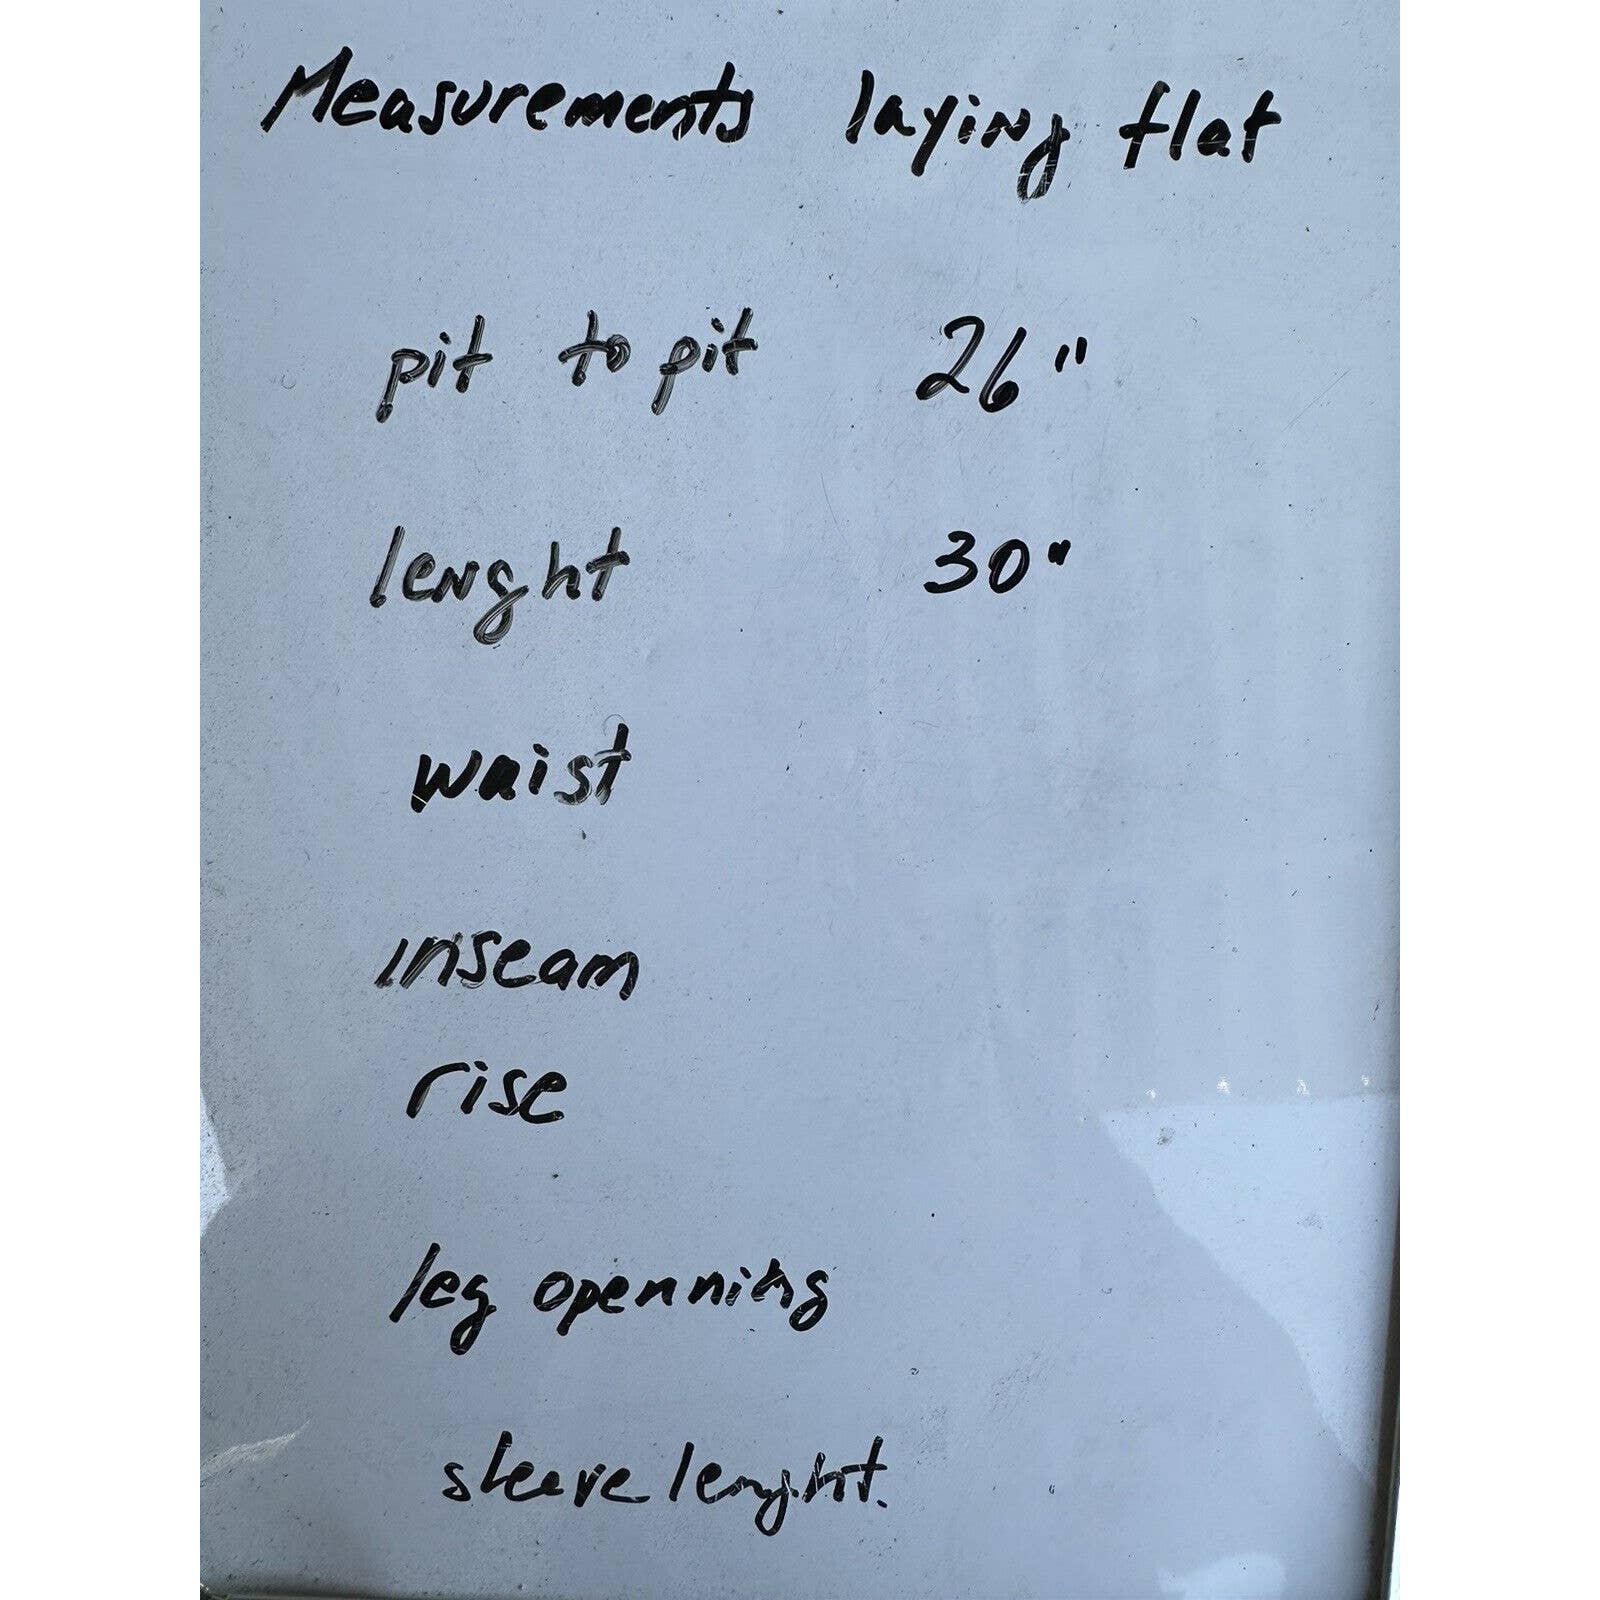 Measurements laying flat
pit to pit 26"
lenght 30"
waist
inseam
rise
leg openning
sleeve lenght.